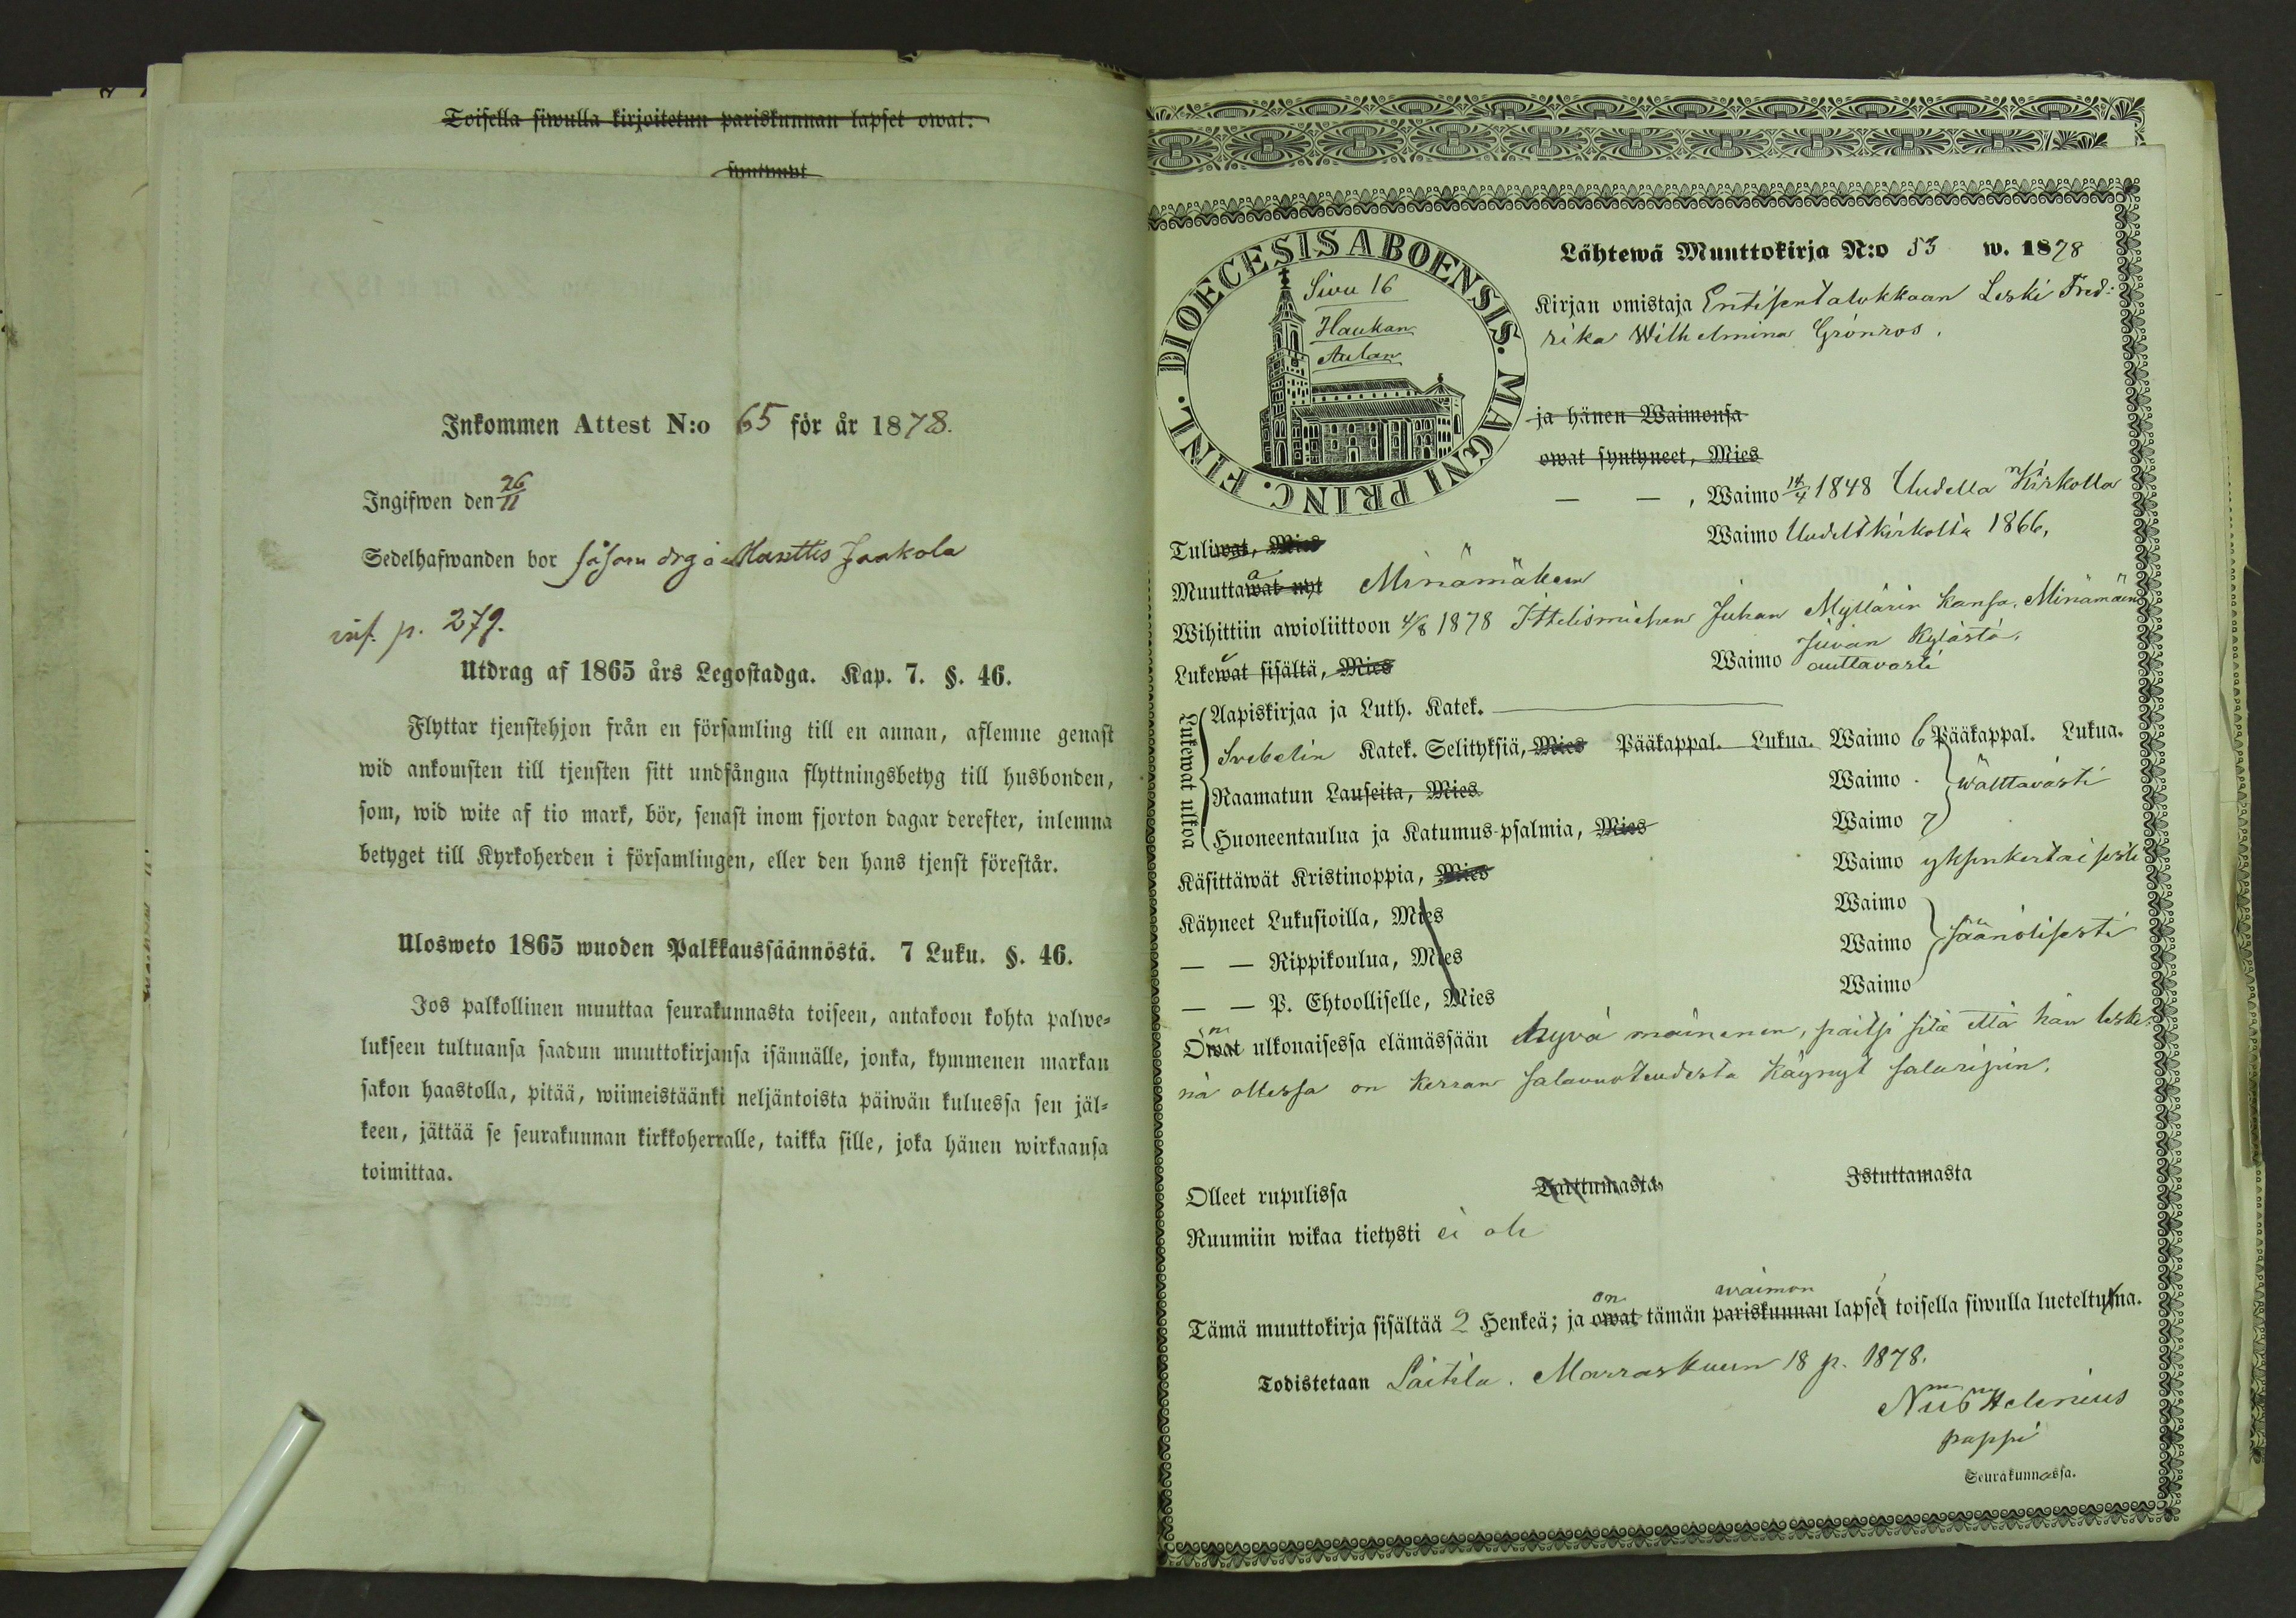 Toisella siwulla kirjoitetun pariskunnan lapset owat:
syntynyt
Inkommen Attest N:o 65 för år 1878.
Ingifwen den 26/11
Sedelhafwanden bor såsom drg å Masettes Jaakola
inf. p. 279.
Utdrag af 1865 års Legostadga. Kap. 7. §. 46.
Flyttar tjenstehjon från en församling till en annan, aflemne genast
wid ankomsten till tjensten sitt undfångna flyttningsbetyg till husbonden,
som, wid wite af tio mark, bör, senast inom fjorton dagar derefter, inlemna
betyget till Kyrkoherden i församlingen, eller den hans tjenst förestår.
Ulosweto 1865 wuoden Palkkaussäännöstä. 7 Luku. §. 46.
Jos palkollinen muuttaa seurakunnasta toiseen, antakoon kohta palwe=
lukseen tultuansa saadun muuttokirjansa isännälle, jonka, kymmenen markan
sakon haastolla, pitää, wiimeistäänki neljäntoista päiwän kuluessa sen jäl=
keen, jättää se seurakunnan kirkkoherralle, taikka sille, joka hänen wirkaansa
toimittaa.
DIOECESIS ABOENSIS. MAGNI PRINC. FINL.
Sivu 16
Haukan
Aulan
Lähtewä Muuttokirja N:o 53 w. 1878
Kirjan omistaja Entisen talokkaan Leski Fred:
rika Wilhelmina Grönroos.
ja hänen Waimonsa
owat syntyneet, Mies
— — , Waimo 14/4 1848 Uudella Kirkolla
Tuliwat, Mies Waimo Uudeltkirkolta 1866,
Muuttawat nyt a Minämäkeen
Wihittiin awioliittoon 4/8 1878 Ittelismiehen Juhan Myllärin kansa, Minämäen
Juvan Kylästä.
Lukewat sisältä, Mies Waimo auttavasti
Lukewat ulkoa
Aapiskirjaa ja Luth. Katek.
Svebelin Katek. Selityksiä, Mies Pääkappal. Lukua. Waimo 6 Pääkappal. Lukua.
Raamatun Lauseita, Mies Waimo wälttävästi
Huoneentaulua ja Katumus-psalmia, Mies Waimo 7
Käsittäwät Kristinoppia, Mies Waimo yksinkertaisesti
Käyneet Lukusioilla, Mies Waimo
— — Rippikoulua, Mies Waimo säänölisesti
— — P. Ehtoolliselle, Mies Waimo
Owat n ulkonaisessa elämässään hyvä mainenen, paitsi sitä että hän leske=
nä ollessa on kerran salavuoteudesta käynyt salaripin.
Olleet rupulissa Tarttumasta Istuttamasta
Ruumiin wikaa tietysti ei ole
on waimon i
Tämä muuttokirja sisältää 2 Henkeä; ja owat tämän pariskunnan lapset toisella siwulla lueteltuna.
Todistetaan Laitila. Marraskuun 18 p. 1878.
Helenius
pappi
Seurakunnassa.